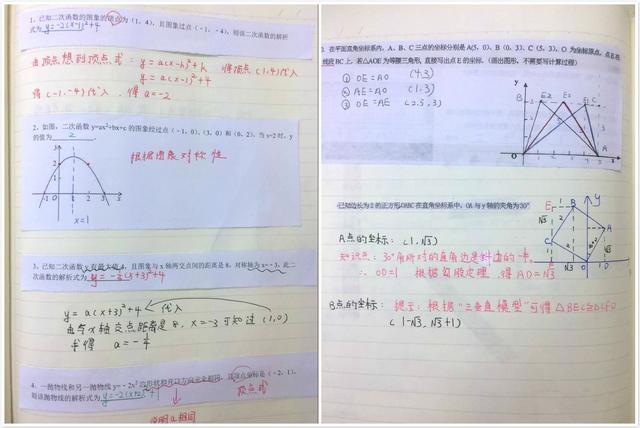 1. 已知二次函数的图象的顶点为(1, 4), 且图象过点(-1, -4), 则该二次函数的解析
式为 y=-2(x-1)²+4
由顶点想到顶点式: y=a(x-h)²+k 将顶点(1,4)代入
y=a(x-1)²+4
将(-1,-4)代入, 得a=-2
2. 如图, 二次函数 y=ax²+bx+c 的图象经过点(-1, 0), (3, 0)和(0, 2), 当 x=2 时, y
的值为 2
根据图象对称性
x=1
3. 已知二次函数 y 有最大值 4, 且图象与 x 轴两交点间的距离是 8, 对称轴为 x=-3, 此二
次函数的解析式为 y=-¼(x+3)²+4
y=a(x+3)²+4 代入
由与x轴交点距离是8, x=-3可知过(1,0)
求得 a=-¼
4. 一抛物线和另一抛物线 y=-2x² 的形状和开口方向完全相同, 且顶点坐标是(-2, 1),
则该抛物线的解析式为 y=-2(x+2)²+1
顶点式
说明a相同
3. 在平面直角坐标系内, A、B、C 三点的坐标分别是 A(5, 0)、B(0, 3)、C(5, 3), O 为坐标原点, 点 E 在
线段 BC 上, 若△AOE 为等腰三角形, 直接写出点 E 的坐标. (画出图形, 不需要写计算过程)
① OE=AO (4,3)
② AE=AO (1,3)
③ OE=AE (2.5,3)
y
B E2 E3 E1 C
O A x
已知边长为2的正方形OABC在直角坐标系中, OA与y轴的夹角为30°
A点的坐标: (1,√3)
知识点: 30°角所对的直角边是斜边的一半
∴ OD=1 根据勾股定理, 得AD=√3
B点的坐标: 提示: 根据"三垂直模型"可得△BEC≌△CFO
(1-√3, √3+1)